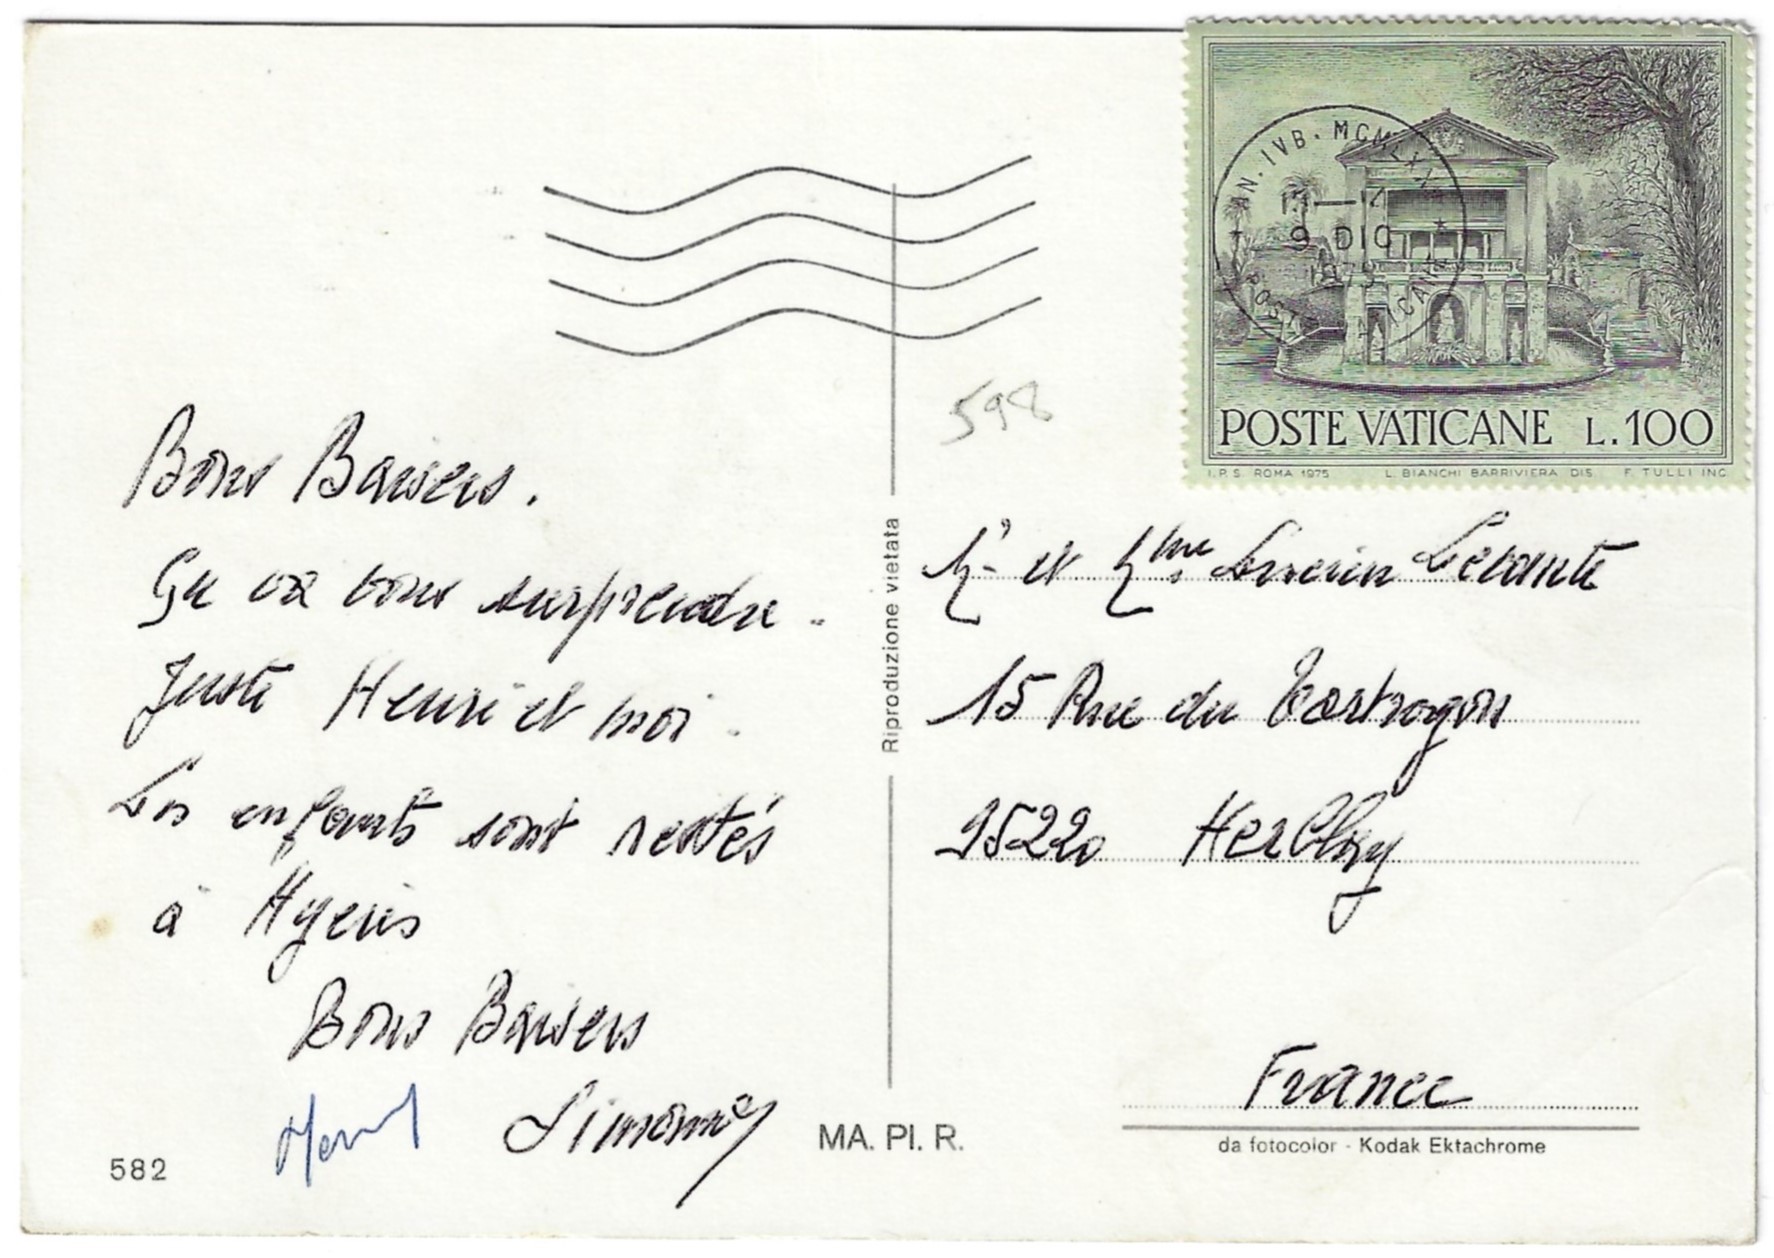 AN. IVB. MCMLXXV
9 DIC
POSTE VATICANE L.100
I.P.S. ROMA 1975 L. BIANCHI BARRIVIERA DIS. F. TULLI INC.
598
Bons Baisers.
Ça va vous surprendre.
Juste Henri et moi.
Les enfants sont restés
à Hyeres
Bons Baisers
Simone
582
Riproduzione vietata
MA. PI. R.
Mr et Mme Lucien
15 Rue du
95220 Herblay
France
da fotocolor - Kodak Ektachrome